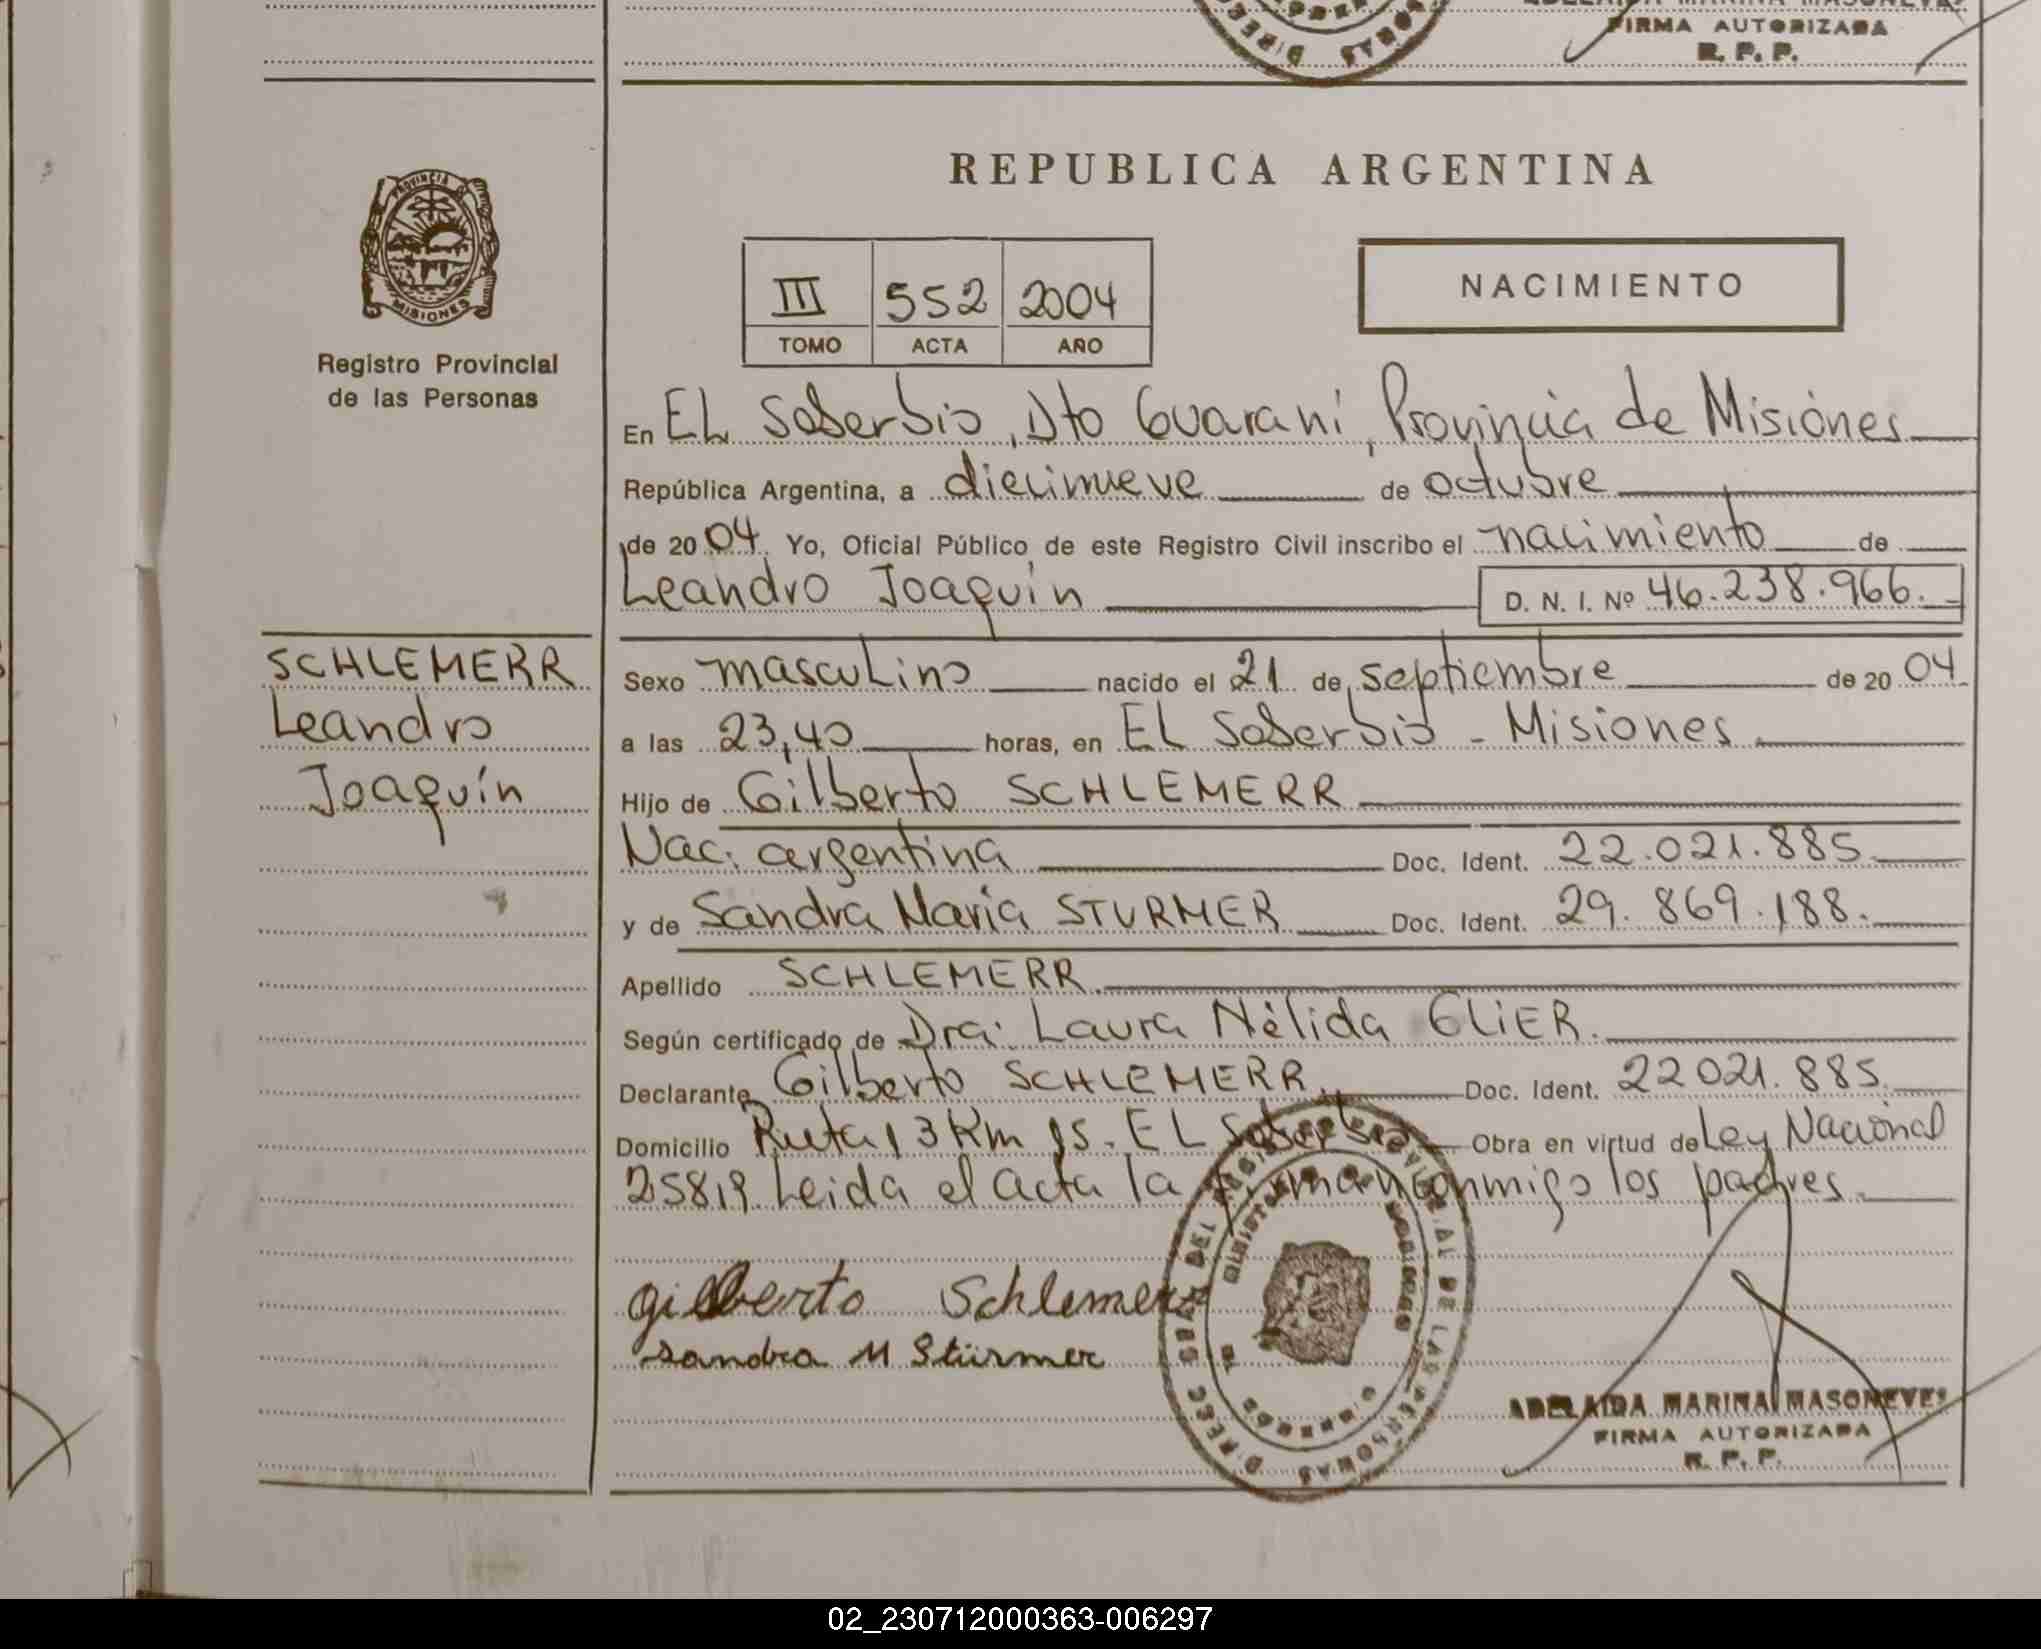 FIRMA AUTORIZADA
R. P. P.
REPUBLICA ARGENTINA
PROVINCIA DE
MISIONES
Registro Provincial
de las Personas
III 552 2004
TOMO ACTA AÑO
NACIMIENTO
En EL Soberbio, Dto Guaraní, Provincia de Misiones
República Argentina, a diecinueve de octubre
de 2004. Yo, Oficial Público de este Registro Civil inscribo el nacimiento de
Leandro Joaquín D. N. I. Nº 46.238.966.
SCHLEMERR
Leandro
Joaquín
Sexo masculino nacido el 21 de septiembre de 2004
a las 23,40 horas, en EL Soberbio - Misiones
Hijo de Gilberto SCHLEMERR
Nac. argentina Doc. Ident. 22.021.885
y de Sandra María STURMER Doc. Ident. 29.869.188.
Apellido SCHLEMERR
Según certificado de Dra. Laura Nélida GLIER.
Declarante Gilberto SCHLEMERR Doc. Ident. 22021.885
Domicilio Ruta 13 Km 15. EL Soberbio Obra en virtud de Ley Nacional
25819. Leida el acta la firman conmigo los padres.
gilberto Schlemerr
Sandra M Stürmer
ADELAIDA MARINA MASONEVES
FIRMA AUTORIZADA
R. P. P.
02_230712000363-006297